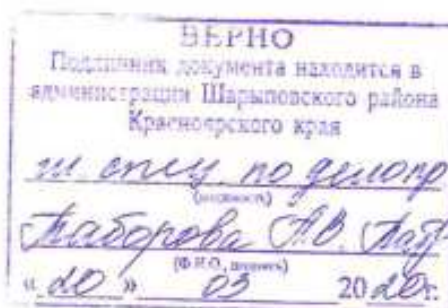 ВЕРНО
Подлинник документа находится в
администрации Шарыповского района
Красноярского края
гл спец по делопр
(должность)
Таборова А.В. Таб
(Ф.И.О., подпись)
« 20 » 03 2020г.